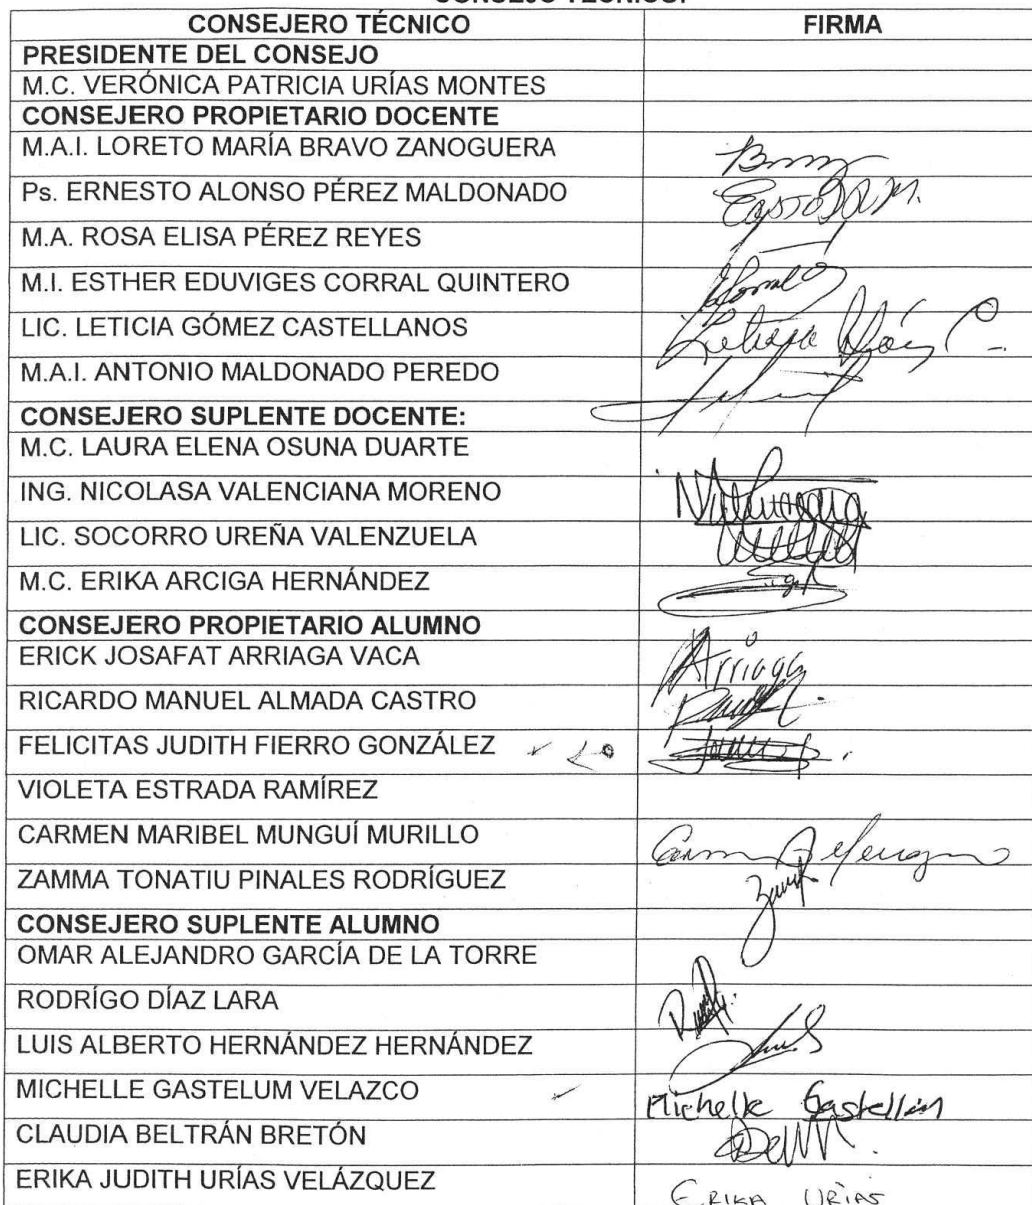 CONSEJERO TÉCNICO FIRMA
PRESIDENTE DEL CONSEJO
M.C. VERÓNICA PATRICIA URÍAS MONTES
CONSEJERO PROPIETARIO DOCENTE
M.A.I. LORETO MARÍA BRAVO ZANOGUERA
Ps. ERNESTO ALONSO PÉREZ MALDONADO
M.A. ROSA ELISA PÉREZ REYES
M.I. ESTHER EDUVIGES CORRAL QUINTERO
LIC. LETICIA GÓMEZ CASTELLANOS
M.A.I. ANTONIO MALDONADO PEREDO
CONSEJERO SUPLENTE DOCENTE:
M.C. LAURA ELENA OSUNA DUARTE
ING. NICOLASA VALENCIANA MORENO
LIC. SOCORRO UREÑA VALENZUELA
M.C. ERIKA ARCIGA HERNÁNDEZ
CONSEJERO PROPIETARIO ALUMNO
ERICK JOSAFAT ARRIAGA VACA Arriaga
RICARDO MANUEL ALMADA CASTRO
FELICITAS JUDITH FIERRO GONZÁLEZ
VIOLETA ESTRADA RAMÍREZ
CARMEN MARIBEL MUNGUÍ MURILLO
ZAMMA TONATIU PINALES RODRÍGUEZ
CONSEJERO SUPLENTE ALUMNO
OMAR ALEJANDRO GARCÍA DE LA TORRE
RODRÍGO DÍAZ LARA
LUIS ALBERTO HERNÁNDEZ HERNÁNDEZ
MICHELLE GASTELUM VELAZCO Michelle Gastelum
CLAUDIA BELTRÁN BRETÓN
ERIKA JUDITH URÍAS VELÁZQUEZ ERIKA URÍAS